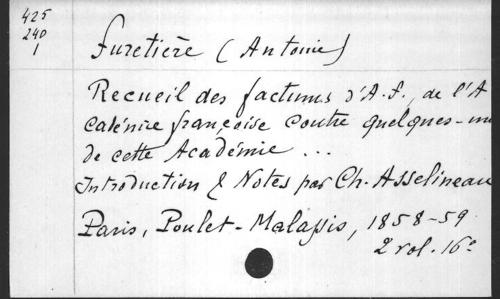 425
240
1
Furetière (Antoine)
Recueil des factums d'A. F., de l'A
cadémie françoise contre quelques-uns
de cette Académie ...
Introduction & Notes par Ch. Asselineau
Paris, Poulet-Malassis, 1858-59
2 vol. 16°